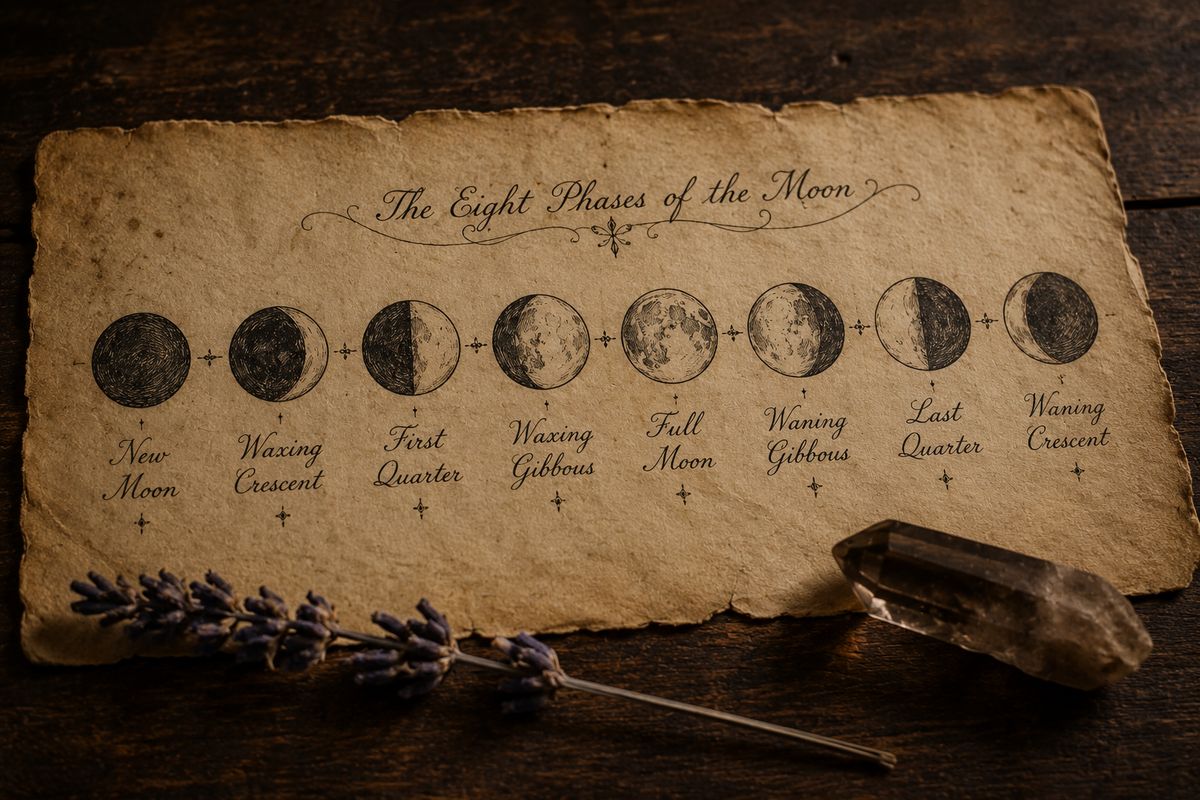 The Eight Phases of the Moon
New
Moon
Waxing
Crescent
First
Quarter
Waxing
Gibbous
Full
Moon
Waning
Gibbous
Last
Quarter
Waning
Crescent